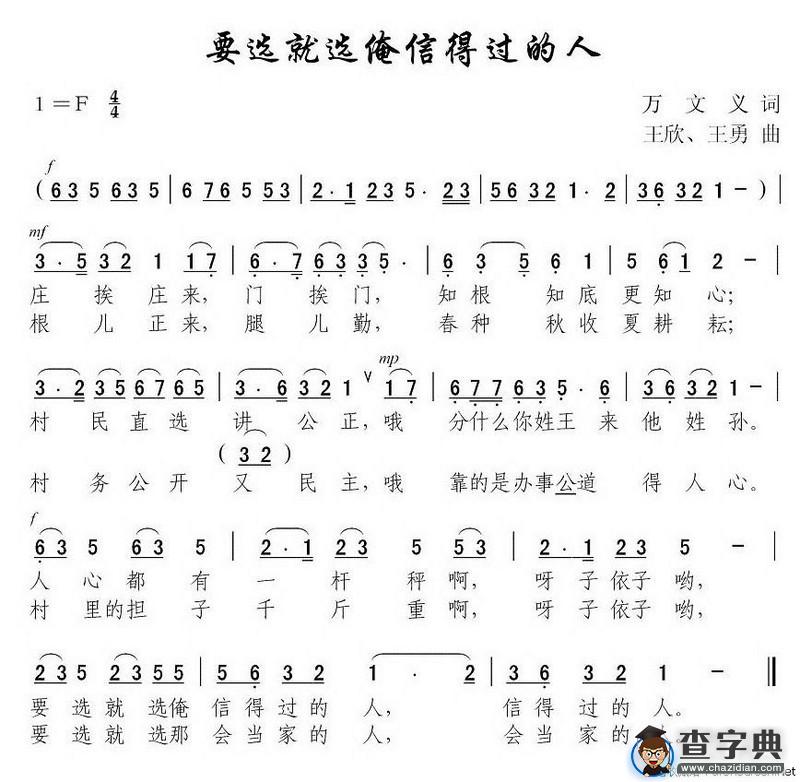 要选就选俺信得过的人
1=F 4/4
万 文 义 词
王欣、王勇 曲
f
( 6 3 5 6 3 5 | 6 7 6 5 5 3 | 2 · 1 2 3 5 · 2 3 | 5 6 3 2 1 · 2 | 3 6 3 2 1 - ) |
mf
3 · 5 3 2 1 1 7 | 6 · 7 6 3 3 5 · | 6 3 5 6 1 | 5 6 1 2 - |
庄 挨 庄 来, 门 挨 门, 知 根 知 底 更 知 心;
根 儿 正 来, 腿 儿 勤, 春 种 秋 收 夏 耕 耘;
mp
3 · 2 3 5 6 7 6 5 | 3 · 6 3 2 1 ∨ 1 7 | 6 7 7 6 3 5 · 6 | 3 6 3 2 1 - |
村 民 直 选 讲 公 正, 哦 分什么你姓王 来 他 姓 孙。
( 3 2 )
村 务 公 开 又 民 主, 哦 靠的是办事公道 得 人 心。
f
6 3 5 6 3 5 | 2 · 1 2 3 5 5 3 | 2 3 2 3 5 - |
人 心 都 有 一 杆 秤 啊, 呀 子 依 子 哟,
村 里的 担 子 千 斤 重 啊, 呀 子 依 子 哟,
2 3 5 2 3 5 5 | 5 6 3 2 1 · 2 | 3 6 3 2 1 - ‖
要 选 就 选俺 信 得 过 的 人, 信 得 过 的 人。
要 选 就 选那 会 当 家 的 人, 会 当 家 的
查字典
www.chazidian.com